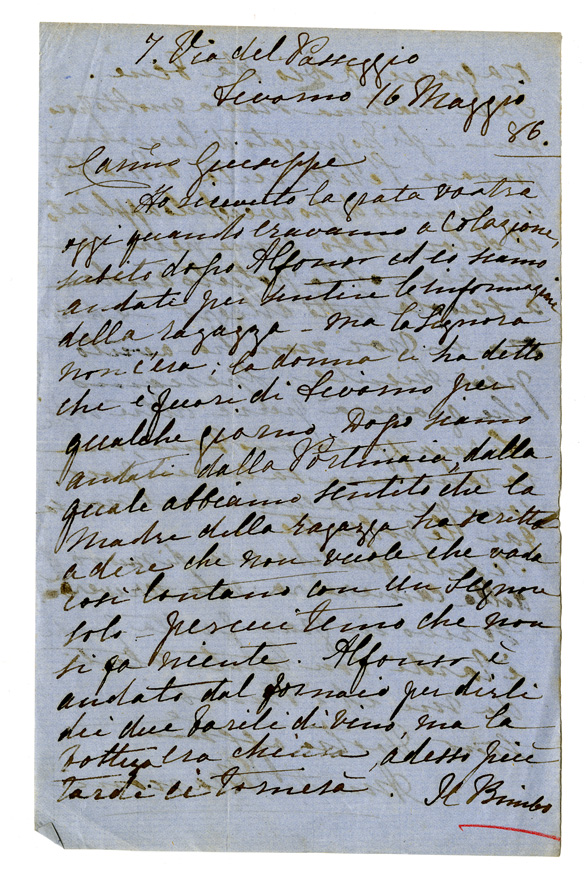 7. Via del Passeggio
Livorno 16 Maggio
86.
Carino Giuseppe
Ho ricevuto la grata vostra
oggi quando eravamo a Colazione,
subito dopo Alfonso ed io siamo
andati per sentire le informazioni
della ragazza - ma la Signora
non c'era; la donna ci ha detto
che è fuori di Livorno per
qualche giorno. Dopo siamo
andati dalla Portinaia, dalla
quale abbiamo sentito che la
Madre della ragazza ha scritto
a dire che non vuole che vada
così lontano con un Signore
solo - percui temo che non
si fa niente. Alfonso è
andato dal fornaio per dirli
dei due barili di vino, ma la
bottega era chiusa, adesso più
tardi ci tornerà. Il Bimbo